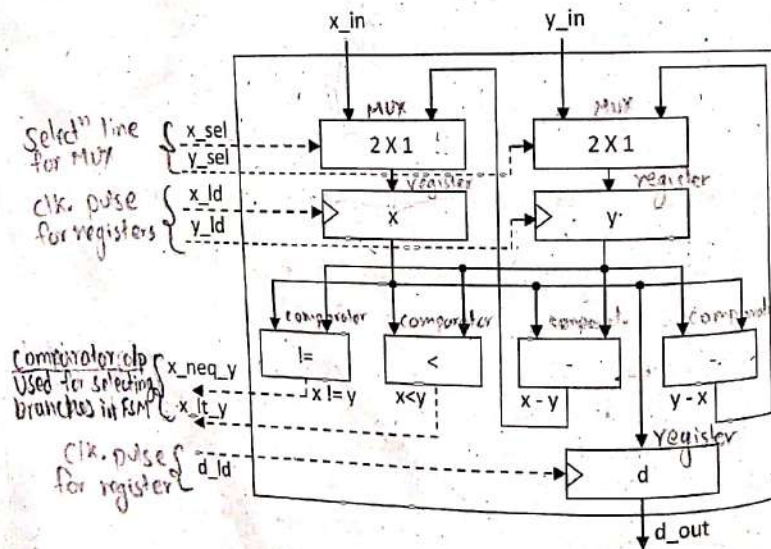 x_in
y_in
MUX
MUX
Select" line
for MUX
x_sel
y_sel
2 X 1
2 X 1
register
register
Clk. pulse
for registers
x_ld
y_ld
x
y
comparator
comparator
!=
<
-
-
comparator o/p
Used for selecting
branches in FSM
x_neq_y
x_lt_y
x != y
x<y
x - y
y - x
register
Clk. pulse
for register
d_ld
d
d_out